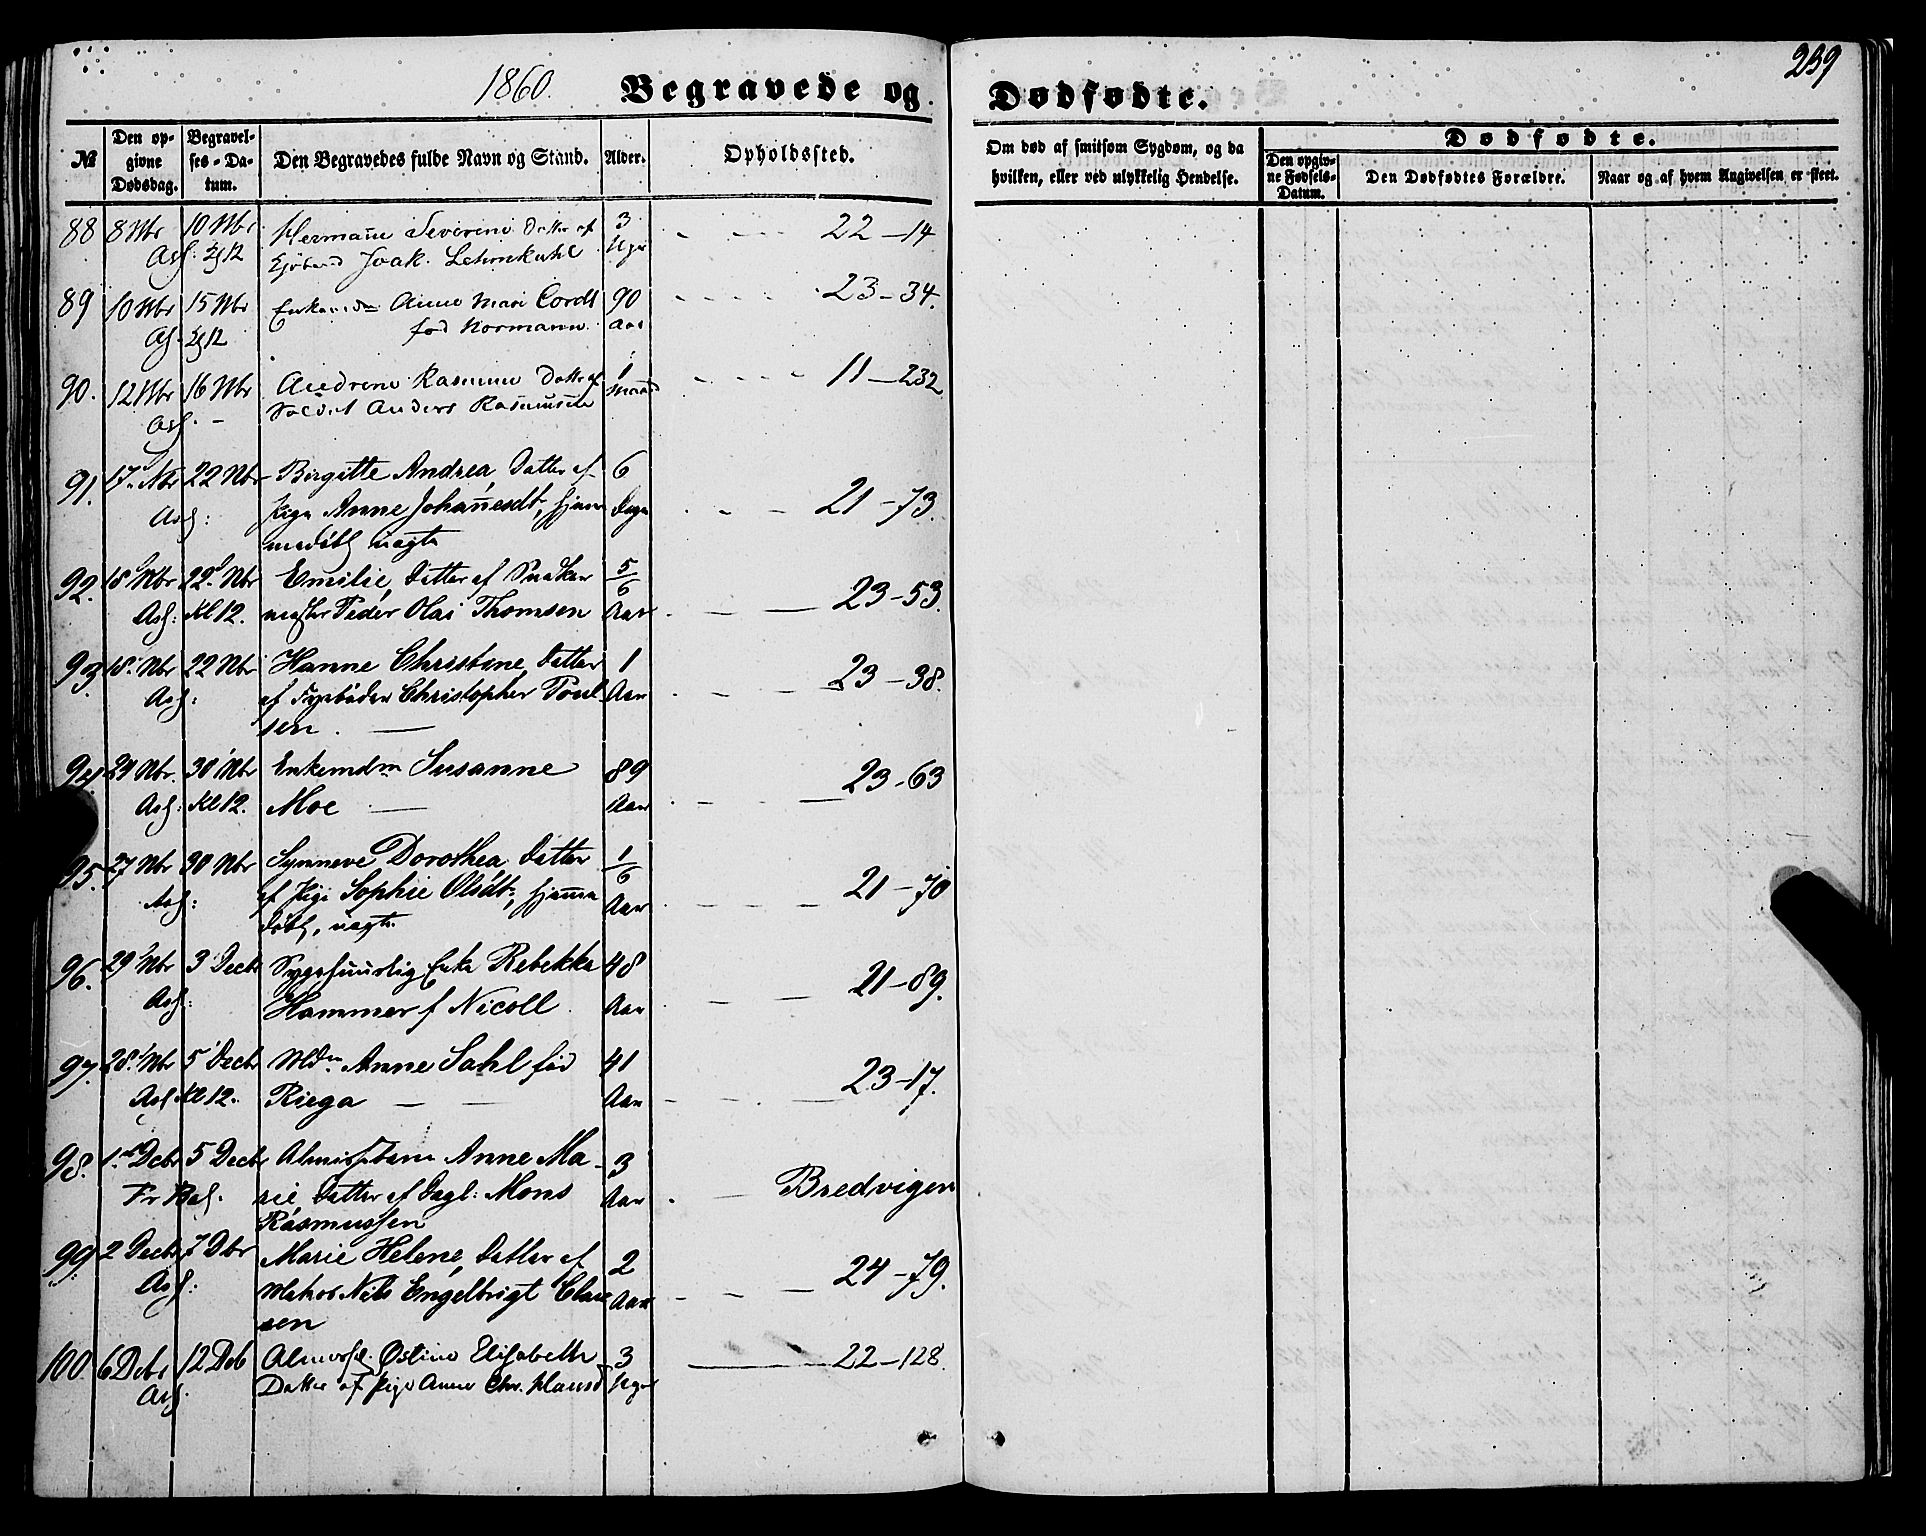 239
1860.
Begravede og Dødfødte.
№
Den opgivne Dødsdag.
Begravelses-Datum.
Den Begravedes fulde Navn og Stand.
Alder.
Opholdssted.
Om død af smitsom Sygdom, og da hvilken, eller ved ulykkelig Hendelse.
Dødfødte.
Den opgivne Fødsels-Datum.
Den Dødfødtes Forældre.
Naar og af hvem Angivelsen er skeet.
88 8 Nbr 10 Nbr Hermane Severine Datter af 3 22-14
Kl 12 Joak. Lehmkuhl Uger
89 10 Nbr 15 Nbr Enkemdm Anne Mari Cordt 90 23-34.
Kl 12 fød Normann Aar
90. 12 Nbr 16 Nbr Andrene Rasmine Datter af 1 11-232
Soldat Anders Rasmussen Maaned
91. 17 Nbr 22 Nbr Birgitte Andrea, Datter af 6 21-73.
Asf: Pige Anne Johannesdt, hjem Dage
medøbt uægte
92. 18 Nbr 22 Nbr Emilie, Datter af Snedker 5/6 23-53.
Asf: Kl 12. mester Peder Olai Thomsen Aar
93. 18. Nbr 22 Nbr Hanne Christine, Datter 1 23-38.
Asf: af Fyrbøder Christopher Poul Aar
sen.
94 24 Nbr. 30 Nbr Enkemdm Susanne 89 23-63
Asf: Kl 12. Moe Aar
95. 27 Nbr 30 Nbr Synneve Dorothea Datter 1/6 21-70
Asf: af Pige Sophie Olsdt:, hjemme Aar
døbt, uægte
96. 29 Nbr 3 Decb Enke Rebekka 48 21-89.
Asf: Hammer f Nicoll. Aar
97. 28. Nbr 5 Decb Mdm Anne Sahl fød 41 23-17.
Asf Kl 12. Riega Aar
98. 1. Dcbr 5 Decb Anne Ma- 3 Bredvigen
rie, Datter af Dagl: Mons Aar
Rasmussen
99. 2 Decb 7 Dbr Marie Helene, Datter af 2 24-79.
Asf: Nils Engelbrigt Clau Aar
sen
100 6 Dcbr 12 Dcb Østine Elisabeth 3 22-128.
Asf. Datter af Pige Anne Chr. Hansd Uger